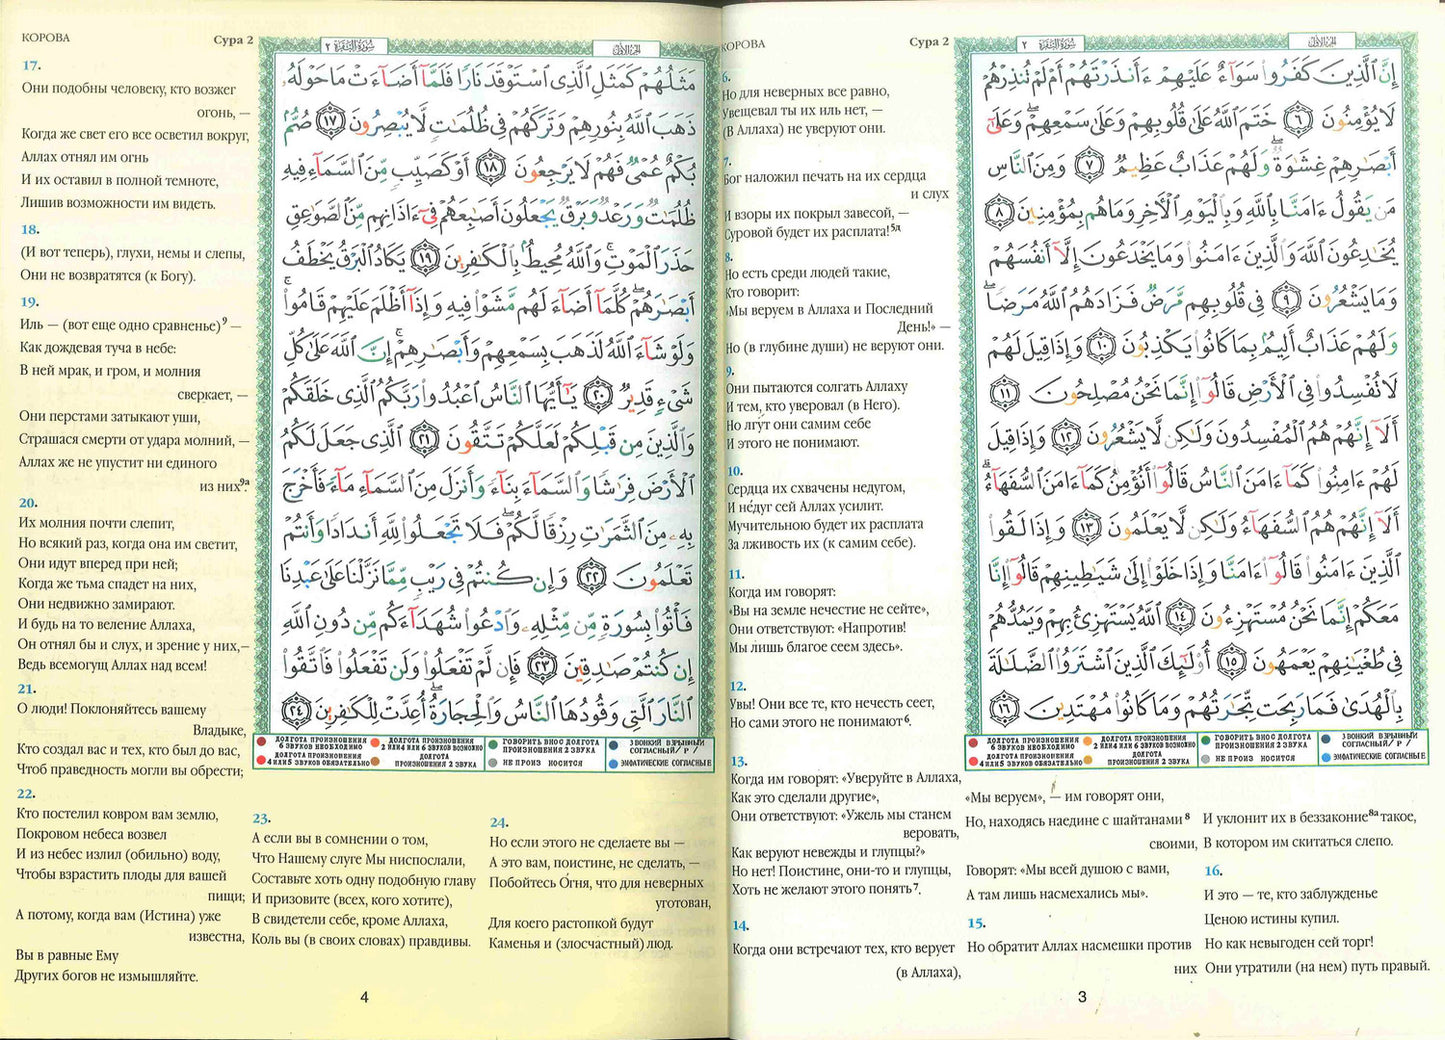 КОРОВА
Сура 2
سورة البقرة ٢
الجزء الأول
إِنَّ الَّذِينَ كَفَرُوا سَوَاءٌ عَلَيْهِمْ ءَأَنذَرْتَهُمْ أَمْ لَمْ تُنذِرْهُمْ
لَا يُؤْمِنُونَ ٦ خَتَمَ اللَّهُ عَلَىٰ قُلُوبِهِمْ وَعَلَىٰ سَمْعِهِمْ ۖ وَعَلَىٰ
أَبْصَٰرِهِمْ غِشَٰوَةٌ ۖ وَلَهُمْ عَذَابٌ عَظِيمٌ ٧ وَمِنَ النَّاسِ
مَن يَقُولُ ءَامَنَّا بِاللَّهِ وَبِالْيَوْمِ الْآخِرِ وَمَا هُم بِمُؤْمِنِينَ ٨
يُخَٰدِعُونَ اللَّهَ وَالَّذِينَ ءَامَنُوا وَمَا يَخْدَعُونَ إِلَّا أَنفُسَهُمْ
وَمَا يَشْعُرُونَ ٩ فِي قُلُوبِهِم مَّرَضٌ فَزَادَهُمُ اللَّهُ مَرَضًا ۖ
وَلَهُمْ عَذَابٌ أَلِيمٌ بِمَا كَانُوا يَكْذِبُونَ ١٠ وَإِذَا قِيلَ لَهُمْ
لَا تُفْسِدُوا فِي الْأَرْضِ قَالُوا إِنَّمَا نَحْنُ مُصْلِحُونَ ١١
أَلَا إِنَّهُمْ هُمُ الْمُفْسِدُونَ وَلَٰكِن لَّا يَشْعُرُونَ ١٢ وَإِذَا قِيلَ
لَهُمْ ءَامِنُوا كَمَا ءَامَنَ النَّاسُ قَالُوا أَنُؤْمِنُ كَمَا ءَامَنَ السُّفَهَاءُ ۗ
أَلَا إِنَّهُمْ هُمُ السُّفَهَاءُ وَلَٰكِن لَّا يَعْلَمُونَ ١٣ وَإِذَا لَقُوا
الَّذِينَ ءَامَنُوا قَالُوا ءَامَنَّا وَإِذَا خَلَوْا إِلَىٰ شَيَٰطِينِهِمْ قَالُوا إِنَّا
مَعَكُمْ إِنَّمَا نَحْنُ مُسْتَهْزِءُونَ ١٤ اللَّهُ يَسْتَهْزِئُ بِهِمْ وَيَمُدُّهُمْ
فِي طُغْيَٰنِهِمْ يَعْمَهُونَ ١٥ أُولَٰئِكَ الَّذِينَ اشْتَرَوُا الضَّلَٰلَةَ
بِالْهُدَىٰ فَمَا رَبِحَت تِّجَٰرَتُهُمْ وَمَا كَانُوا مُهْتَدِينَ ١٦
ДОЛГОТА ПРОИЗНОШЕНИЯ 6 ЗВУКОВ НЕОБХОДИМО
ДОЛГОТА ПРОИЗНОШЕНИЯ 2 ИЛИ 4 ИЛИ 6 ЗВУКОВ ВОЗМОЖНО
ГОВОРИТЬ В НОС ДОЛГОТА ПРОИЗНОШЕНИЯ 2 ЗВУКА
ЗВОНКИЙ ВЗРЫВНЫЙ СОГЛАСНЫЙ / Р /
ДОЛГОТА ПРОИЗНОШЕНИЯ 4 ИЛИ 5 ЗВУКОВ ОБЯЗАТЕЛЬНО
ДОЛГОТА ПРОИЗНОШЕНИЯ 2 ЗВУКА
НЕ ПРОИЗ НОСИТСЯ
ЭМФАТИЧЕСКИЕ СОГЛАСНЫЕ
6.
Но для неверных все равно,
Увещевал ты их иль нет, —
(В Аллаха) не уверуют они.
7.
Бог наложил печать на их сердца
и слух
И взоры их покрыл завесой, —
Суровой будет их расплата!5д
8.
Но есть среди людей такие,
Кто говорит:
«Мы веруем в Аллаха и Последний
День!» —
Но (в глубине души) не веруют они.
9.
Они пытаются солгать Аллаху
И тем, кто уверовал (в Него).
Но лгут они самим себе
И этого не понимают.
10.
Сердца их схвачены недугом,
И недуг сей Аллах усилит.
Мучительною будет их расплата
За лживость их (к самим себе).
11.
Когда им говорят:
«Вы на земле нечестие не сейте»,
Они ответствуют: «Напротив!
Мы лишь благое сеем здесь».
12.
Увы! Они все те, кто нечесть сеет,
Но сами этого не понимают6.
13.
Когда им говорят: «Уверуйте в Аллаха,
Как это сделали другие»,
Они ответствуют: «Ужель мы станем
веровать,
Как веруют невежды и глупцы?»
Но нет! Поистине, они-то и глупцы,
Хоть не желают этого понять7.
14.
Когда они встречают тех, кто верует
(в Аллаха),
«Мы веруем», — им говорят они,
Но, находясь наедине с шайтанами8
своими,
Говорят: «Мы всей душою с вами,
А там лишь насмехались мы».
15.
Но обратит Аллах насмешки против
них
И уклонит их в беззаконие8а такое,
В котором им скитаться слепо.
16.
И это — те, кто заблужденье
Ценою истины купил.
Но как невыгоден сей торг!
Они утратили (на нем) путь правый.
3
КОРОВА
Сура 2
سورة البقرة ٢
الجزء الأول
مَثَلُهُمْ كَمَثَلِ الَّذِي اسْتَوْقَدَ نَارًا فَلَمَّا أَضَاءَتْ مَا حَوْلَهُ
ذَهَبَ اللَّهُ بِنُورِهِمْ وَتَرَكَهُمْ فِي ظُلُمَٰتٍ لَّا يُبْصِرُونَ ١٧ صُمٌّ
بُكْمٌ عُمْيٌ فَهُمْ لَا يَرْجِعُونَ ١٨ أَوْ كَصَيِّبٍ مِّنَ السَّمَاءِ فِيهِ
ظُلُمَٰتٌ وَرَعْدٌ وَبَرْقٌ يَجْعَلُونَ أَصَٰبِعَهُمْ فِي ءَاذَانِهِم مِّنَ الصَّوَٰعِقِ
حَذَرَ الْمَوْتِ ۚ وَاللَّهُ مُحِيطٌ بِالْكَٰفِرِينَ ١٩ يَكَادُ الْبَرْقُ يَخْطَفُ
أَبْصَٰرَهُمْ ۖ كُلَّمَا أَضَاءَ لَهُم مَّشَوْا فِيهِ وَإِذَا أَظْلَمَ عَلَيْهِمْ قَامُوا ۚ
وَلَوْ شَاءَ اللَّهُ لَذَهَبَ بِسَمْعِهِمْ وَأَبْصَٰرِهِمْ ۚ إِنَّ اللَّهَ عَلَىٰ كُلِّ
شَيْءٍ قَدِيرٌ ٢٠ يَٰأَيُّهَا النَّاسُ اعْبُدُوا رَبَّكُمُ الَّذِي خَلَقَكُمْ
وَالَّذِينَ مِن قَبْلِكُمْ لَعَلَّكُمْ تَتَّقُونَ ٢١ الَّذِي جَعَلَ لَكُمُ
الْأَرْضَ فِرَٰشًا وَالسَّمَاءَ بِنَاءً وَأَنزَلَ مِنَ السَّمَاءِ مَاءً فَأَخْرَجَ
بِهِ مِنَ الثَّمَرَٰتِ رِزْقًا لَّكُمْ ۖ فَلَا تَجْعَلُوا لِلَّهِ أَندَادًا وَأَنتُمْ
تَعْلَمُونَ ٢٢ وَإِن كُنتُمْ فِي رَيْبٍ مِّمَّا نَزَّلْنَا عَلَىٰ عَبْدِنَا
فَأْتُوا بِسُورَةٍ مِّن مِّثْلِهِ وَادْعُوا شُهَدَاءَكُم مِّن دُونِ اللَّهِ
إِن كُنتُمْ صَٰدِقِينَ ٢٣ فَإِن لَّمْ تَفْعَلُوا وَلَن تَفْعَلُوا فَاتَّقُوا
النَّارَ الَّتِي وَقُودُهَا النَّاسُ وَالْحِجَارَةُ ۖ أُعِدَّتْ لِلْكَٰفِرِينَ ٢٤
ДОЛГОТА ПРОИЗНОШЕНИЯ 6 ЗВУКОВ НЕОБХОДИМО
ДОЛГОТА ПРОИЗНОШЕНИЯ 2 ИЛИ 4 ИЛИ 6 ЗВУКОВ ВОЗМОЖНО
ГОВОРИТЬ В НОС ДОЛГОТА ПРОИЗНОШЕНИЯ 2 ЗВУКА
ЗВОНКИЙ ВЗРЫВНЫЙ СОГЛАСНЫЙ / Р /
ДОЛГОТА ПРОИЗНОШЕНИЯ 4 ИЛИ 5 ЗВУКОВ ОБЯЗАТЕЛЬНО
ДОЛГОТА ПРОИЗНОШЕНИЯ 2 ЗВУКА
НЕ ПРОИЗ НОСИТСЯ
ЭМФАТИЧЕСКИЕ СОГЛАСНЫЕ
17.
Они подобны человеку, кто возжег
огонь, —
Когда же свет его все осветил вокруг,
Аллах отнял им огнь
И их оставил в полной темноте,
Лишив возможности им видеть.
18.
(И вот теперь), глухи, немы и слепы,
Они не возвратятся (к Богу).
19.
Иль — (вот еще одно сравненье)9 —
Как дождевая туча в небе:
В ней мрак, и гром, и молния
сверкает, —
Они перстами затыкают уши,
Страшася смерти от удара молний, —
Аллах же не упустит ни единого
из них9а.
20.
Их молния почти слепит,
Но всякий раз, когда она им светит,
Они идут вперед при ней;
Когда же тьма спадет на них,
Они недвижно замирают.
И будь на то веление Аллаха,
Он отнял бы и слух, и зрение у них,–
Ведь всемогущ Аллах над всем!
21.
О люди! Поклоняйтесь вашему
Владыке,
Кто создал вас и тех, кто был до вас,
Чтоб праведность могли вы обрести;
22.
Кто постелил ковром вам землю,
Покровом небеса возвел
И из небес излил (обильно) воду,
Чтобы взрастить плоды для вашей
пищи;
А потому, когда вам (Истина) уже
известна,
Вы в равные Ему
Других богов не измышляйте.
23.
А если вы в сомнении о том,
Что Нашему слуге Мы ниспослали,
Составьте хоть одну подобную главу
И призовите (всех, кого хотите),
В свидетели себе, кроме Аллаха,
Коль вы (в своих словах) правдивы.
24.
Но если этого не сделаете вы —
А это вам, поистине, не сделать, —
Побойтесь Огня, что для неверных
уготован,
Для коего растопкой будут
Каменья и (злосчастный) люд.
4